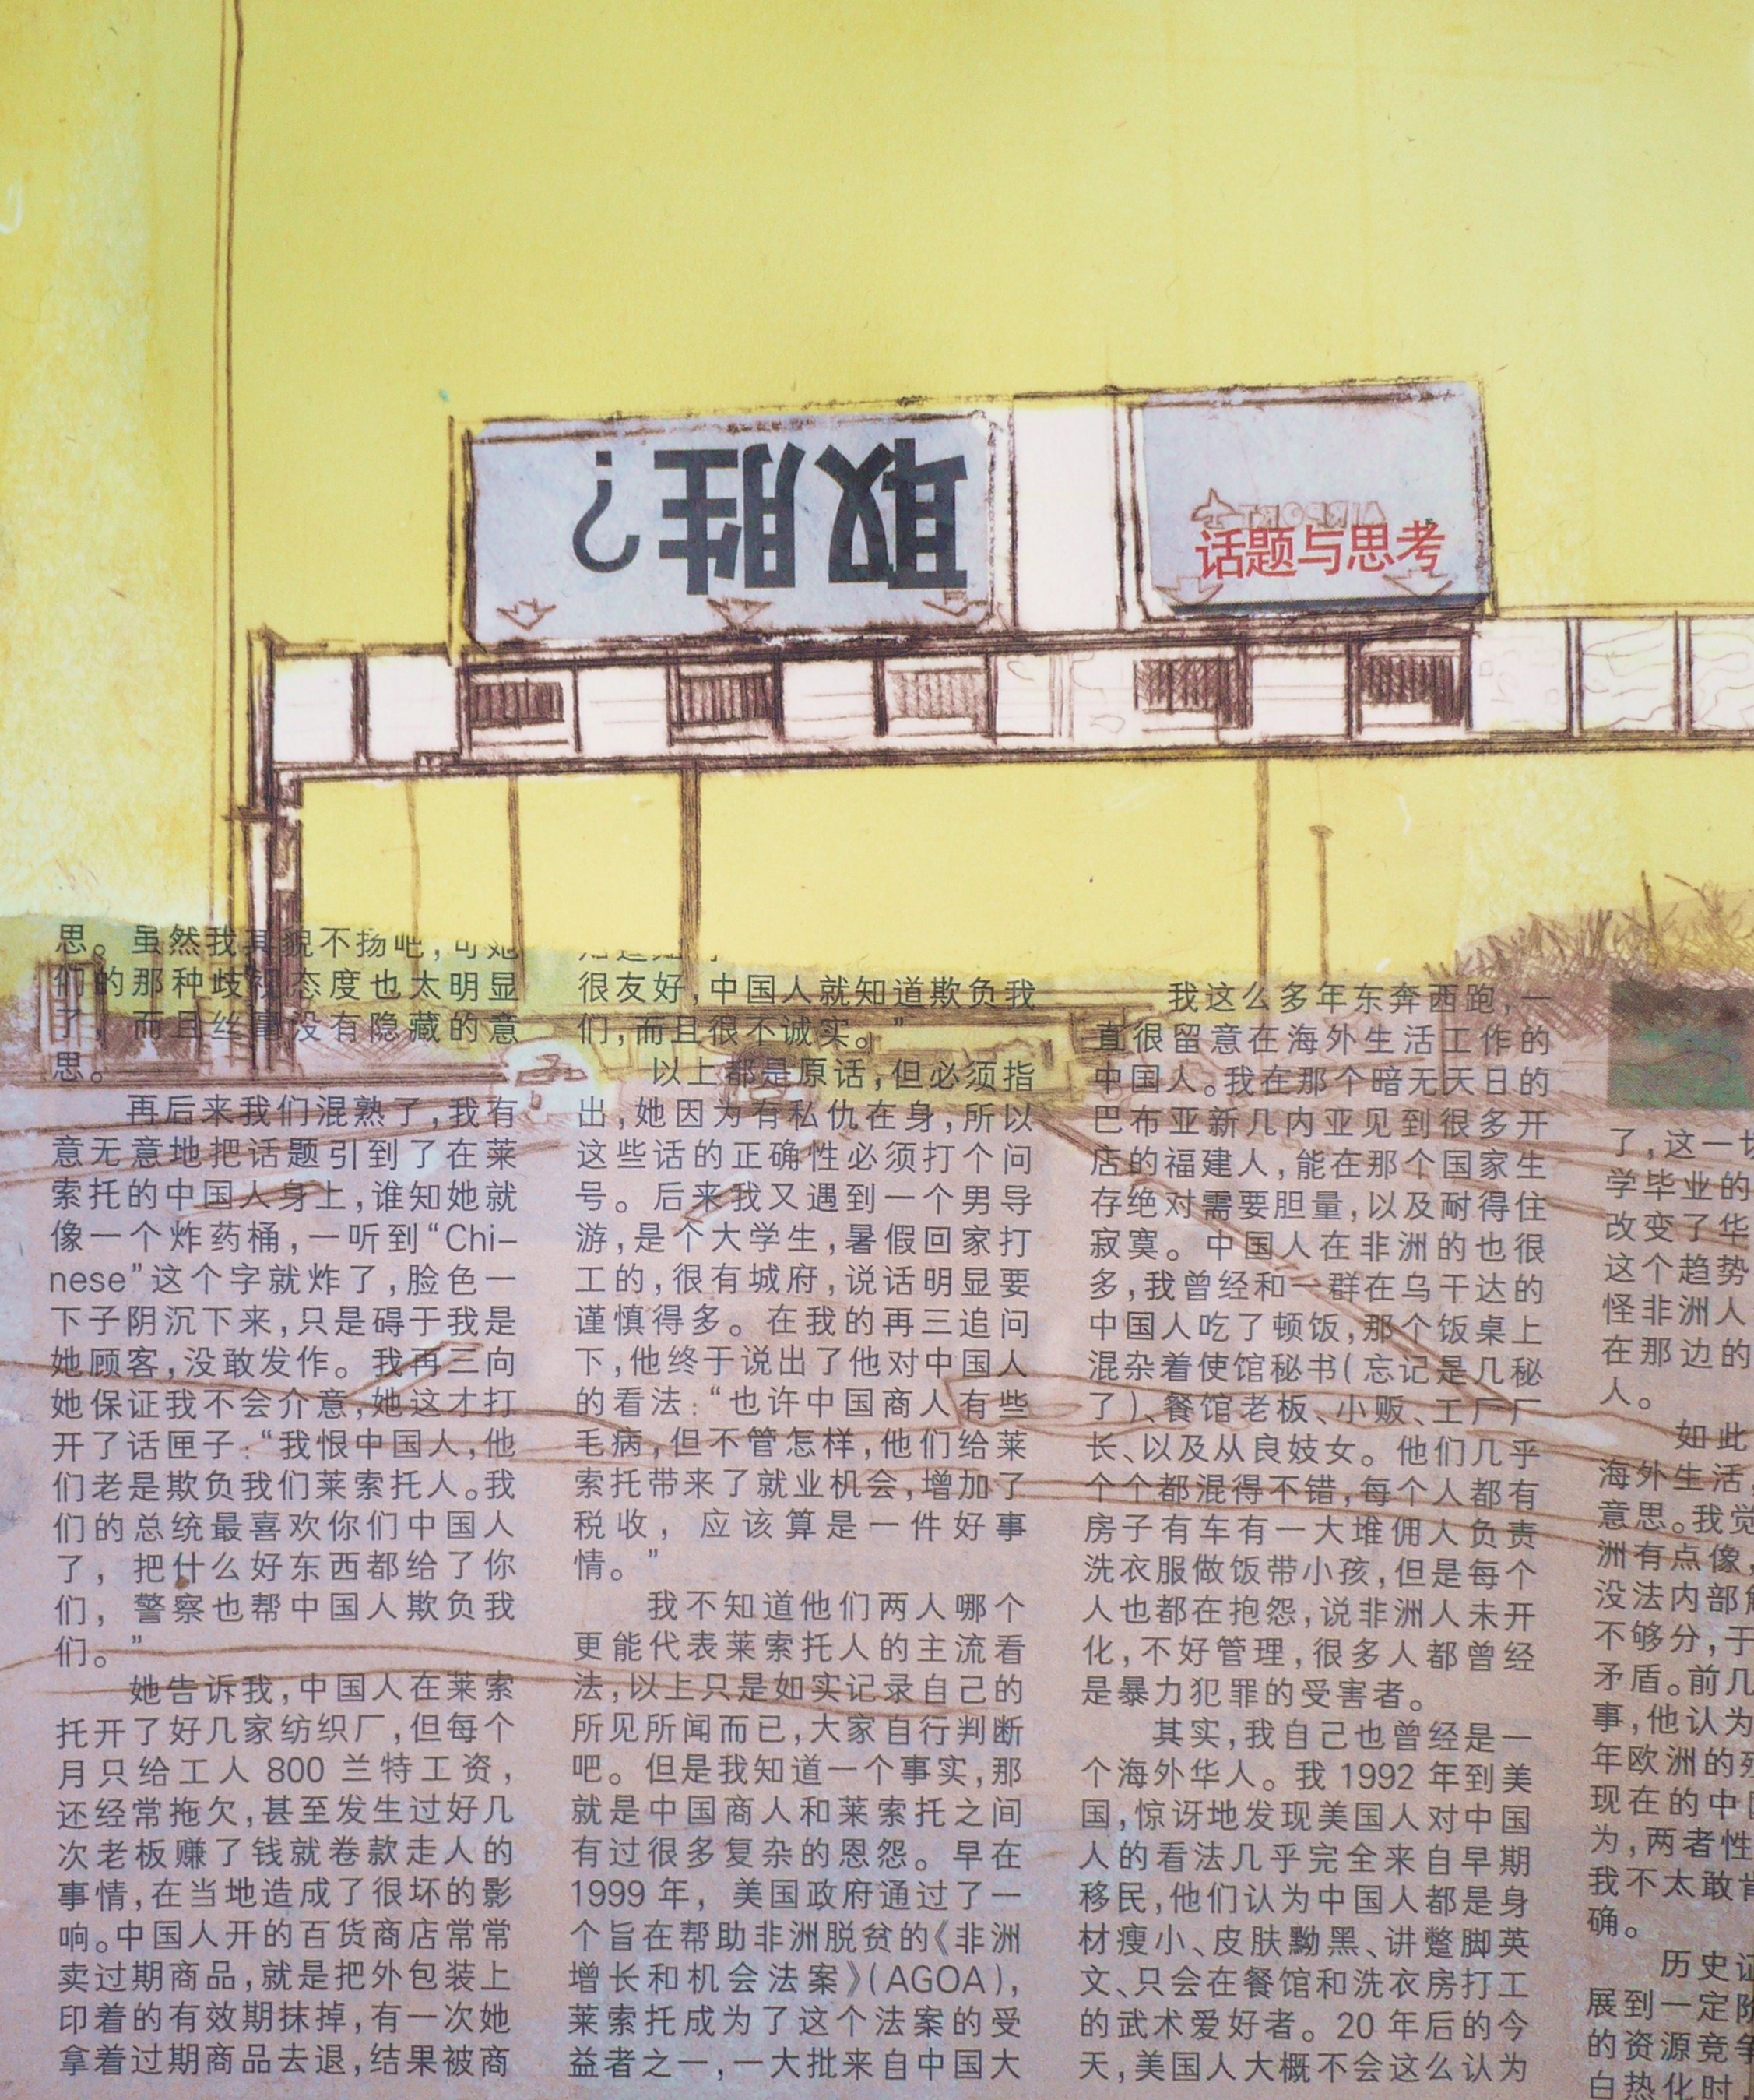 取胜?
AIRPORT
话题与思考
思。虽然我其貌不扬吧,可她
们的那种歧视态度也太明显
了,而且丝毫没有隐藏的意
思。
再后来我们混熟了,我有
意无意地把话题引到了在莱
索托的中国人身上,谁知她就
像一个炸药桶,一听到“Chi-
nese”这个字就炸了,脸色一
下子阴沉下来,只是碍于我是
她顾客,没敢发作。我再三向
她保证我不会介意,她这才打
开了话匣子:“我恨中国人,他
们老是欺负我们莱索托人。我
们的总统最喜欢你们中国人
了,把什么好东西都给了你
们,警察也帮中国人欺负我
们。”
她告诉我,中国人在莱索
托开了好几家纺织厂,但每个
月只给工人 800 兰特工资,
还经常拖欠,甚至发生过好几
次老板赚了钱就卷款走人的
事情,在当地造成了很坏的影
响。中国人开的百货商店常常
卖过期商品,就是把外包装上
印着的有效期抹掉,有一次她
拿着过期商品去退,结果被商
很友好,中国人就知道欺负我
们,而且很不诚实。”
以上都是原话,但必须指
出,她因为有私仇在身,所以
这些话的正确性必须打个问
号。后来我又遇到一个男导
游,是个大学生,暑假回家打
工的,很有城府,说话明显要
谨慎得多。在我的再三追问
下,他终于说出了他对中国人
的看法:“也许中国商人有些
毛病,但不管怎样,他们给莱
索托带来了就业机会,增加了
税收,应该算是一件好事
情。”
我不知道他们两人哪个
更能代表莱索托人的主流看
法,以上只是如实记录自己的
所见所闻而已,大家自行判断
吧。但是我知道一个事实,那
就是中国商人和莱索托之间
有过很多复杂的恩怨。早在
1999 年,美国政府通过了一
个旨在帮助非洲脱贫的《非洲
增长和机会法案》(AGOA),
莱索托成为了这个法案的受
益者之一,一大批来自中国大
我这么多年东奔西跑,一
直很留意在海外生活工作的
中国人。我在那个暗无天日的
巴布亚新几内亚见到很多开
店的福建人,能在那个国家生
存绝对需要胆量,以及耐得住
寂寞。中国人在非洲的也很
多,我曾经和一群在乌干达的
中国人吃了顿饭,那个饭桌上
混杂着使馆秘书(忘记是几秘
了)、餐馆老板、小贩、工厂厂
长、以及从良妓女。他们几乎
个个都混得不错,每个人都有
房子有车有一大堆佣人负责
洗衣服做饭带小孩,但是每个
人也都在抱怨,说非洲人未开
化,不好管理,很多人都曾经
是暴力犯罪的受害者。
其实,我自己也曾经是一
个海外华人。我 1992 年到美
国,惊讶地发现美国人对中国
人的看法几乎完全来自早期
移民,他们认为中国人都是身
材瘦小、皮肤黝黑、讲蹩脚英
文、只会在餐馆和洗衣房打工
的武术爱好者。20 年后的今
天,美国人大概不会这么认为
了,这一切
学毕业的
改变了华
这个趋势
怪非洲人
在那边的
人。
如此
海外生活,
意思。我觉
洲有点像,
没法内部
不够分,于
矛盾。前几
事,他认为
年欧洲的
现在的中
为,两者性
我不太敢肯
确。
历史证
展到一定阶
的资源竞争
白热化时,